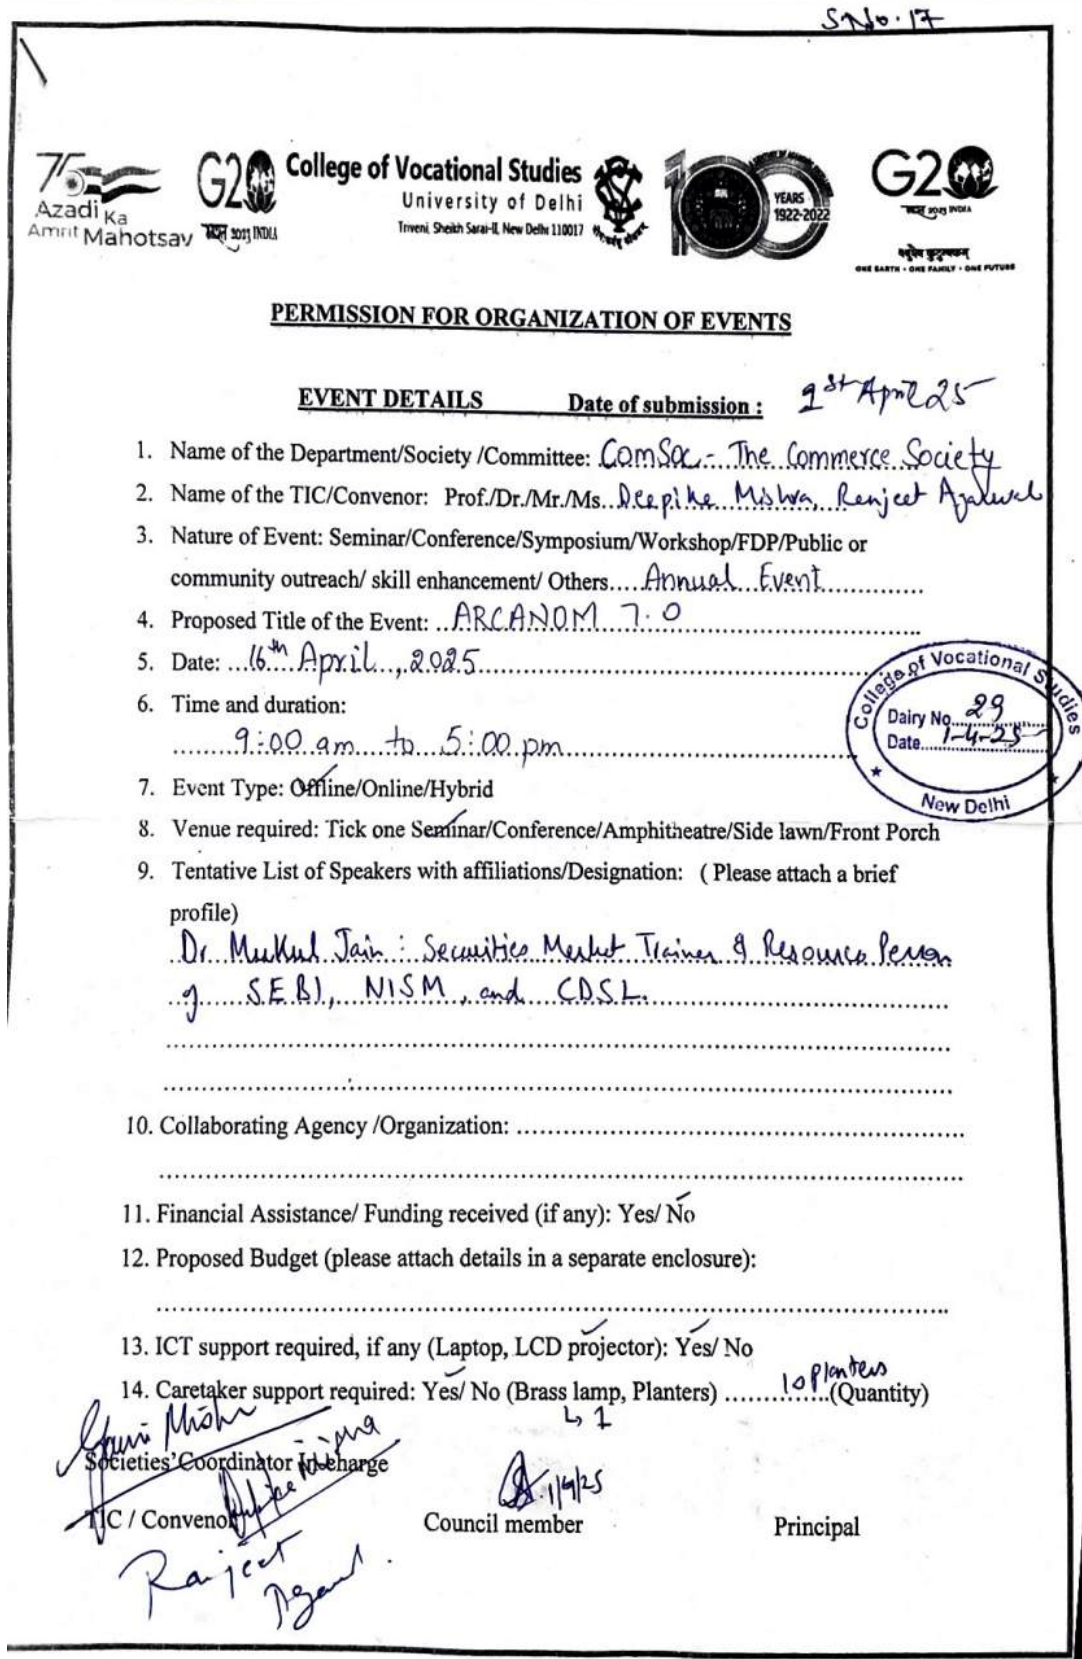 SNo. 17
75
Azadi Ka
Amrit Mahotsav
G20
भारत 2023 INDIA
College of Vocational Studies
University of Delhi
Triveni, Sheikh Sarai-II, New Delhi 110017
100
YEARS
1922-2022
G20
भारत 2023 INDIA
वसुधैव कुटुम्बकम्
ONE EARTH • ONE FAMILY • ONE FUTURE
PERMISSION FOR ORGANIZATION OF EVENTS
EVENT DETAILS Date of submission : 1st April 25
1. Name of the Department/Society /Committee: ComSoc - The Commerce Society
2. Name of the TIC/Convenor: Prof./Dr./Mr./Ms. Deepika Mishra, Ranjeet Agarwal
3. Nature of Event: Seminar/Conference/Symposium/Workshop/FDP/Public or
community outreach/ skill enhancement/ Others.... Annual Event
4. Proposed Title of the Event: ARCANOM 7.0
5. Date: 16th April, 2025
6. Time and duration:
9:00 am to 5:00 pm
College of Vocational Studies
Dairy No. 29
Date 1-4-25
New Delhi
7. Event Type: Offline/Online/Hybrid
8. Venue required: Tick one Seminar/Conference/Amphitheatre/Side lawn/Front Porch
9. Tentative List of Speakers with affiliations/Designation: ( Please attach a brief
profile)
Dr. Mukul Jain : Securities Market Trainer & Resource Person
of SEBI, NISM, and CDSL.
10. Collaborating Agency /Organization:
11. Financial Assistance/ Funding received (if any): Yes/ No
12. Proposed Budget (please attach details in a separate enclosure):
13. ICT support required, if any (Laptop, LCD projector): Yes/ No
14. Caretaker support required: Yes/ No (Brass lamp, Planters) 10 Planters (Quantity)
↳ 1
Mishr
Societies' Coordinator Incharge
1/4/25
TIC / Convenor
Council member
Principal
Ranjeet
Agarwal